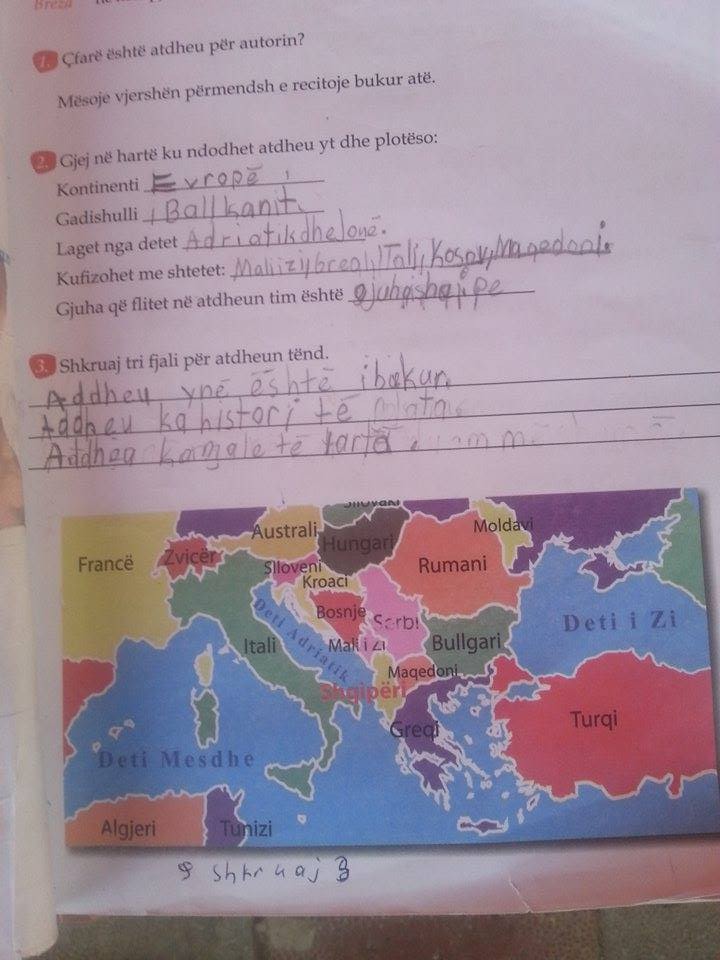 Breza
1. Çfarë është atdheu për autorin?
Mësoje vjershën përmendsh e recitoje bukur atë.
2. Gjej në hartë ku ndodhet atdheu yt dhe plotëso:
Kontinenti Evropë
Gadishulli i Ballkanit.
Laget nga detet Adriatik dhe Jonë.
Kufizohet me shtetet: Mali izi, Greqi, Itali, Kosov, Maqedoni.
Gjuha që flitet në atdheun tim është gjuhashqipe
3. Shkruaj tri fjali për atdheun tënd.
Addheu ynë është ibukur.
Addheu ka histori të
Addheu ka male të larta.
Sllovaki
Francë
Zvicër
Australi
Hungari
Moldavi
Slloveni
Kroaci
Rumani
Bosnje
Serbi
Deti i Zi
Itali
Deti Adriatik
Mali i zi
Bullgari
Maqedoni
Shqipëri
Greqi
Turqi
Deti Mesdhe
Algjeri
Tunizi
shkruaj 3